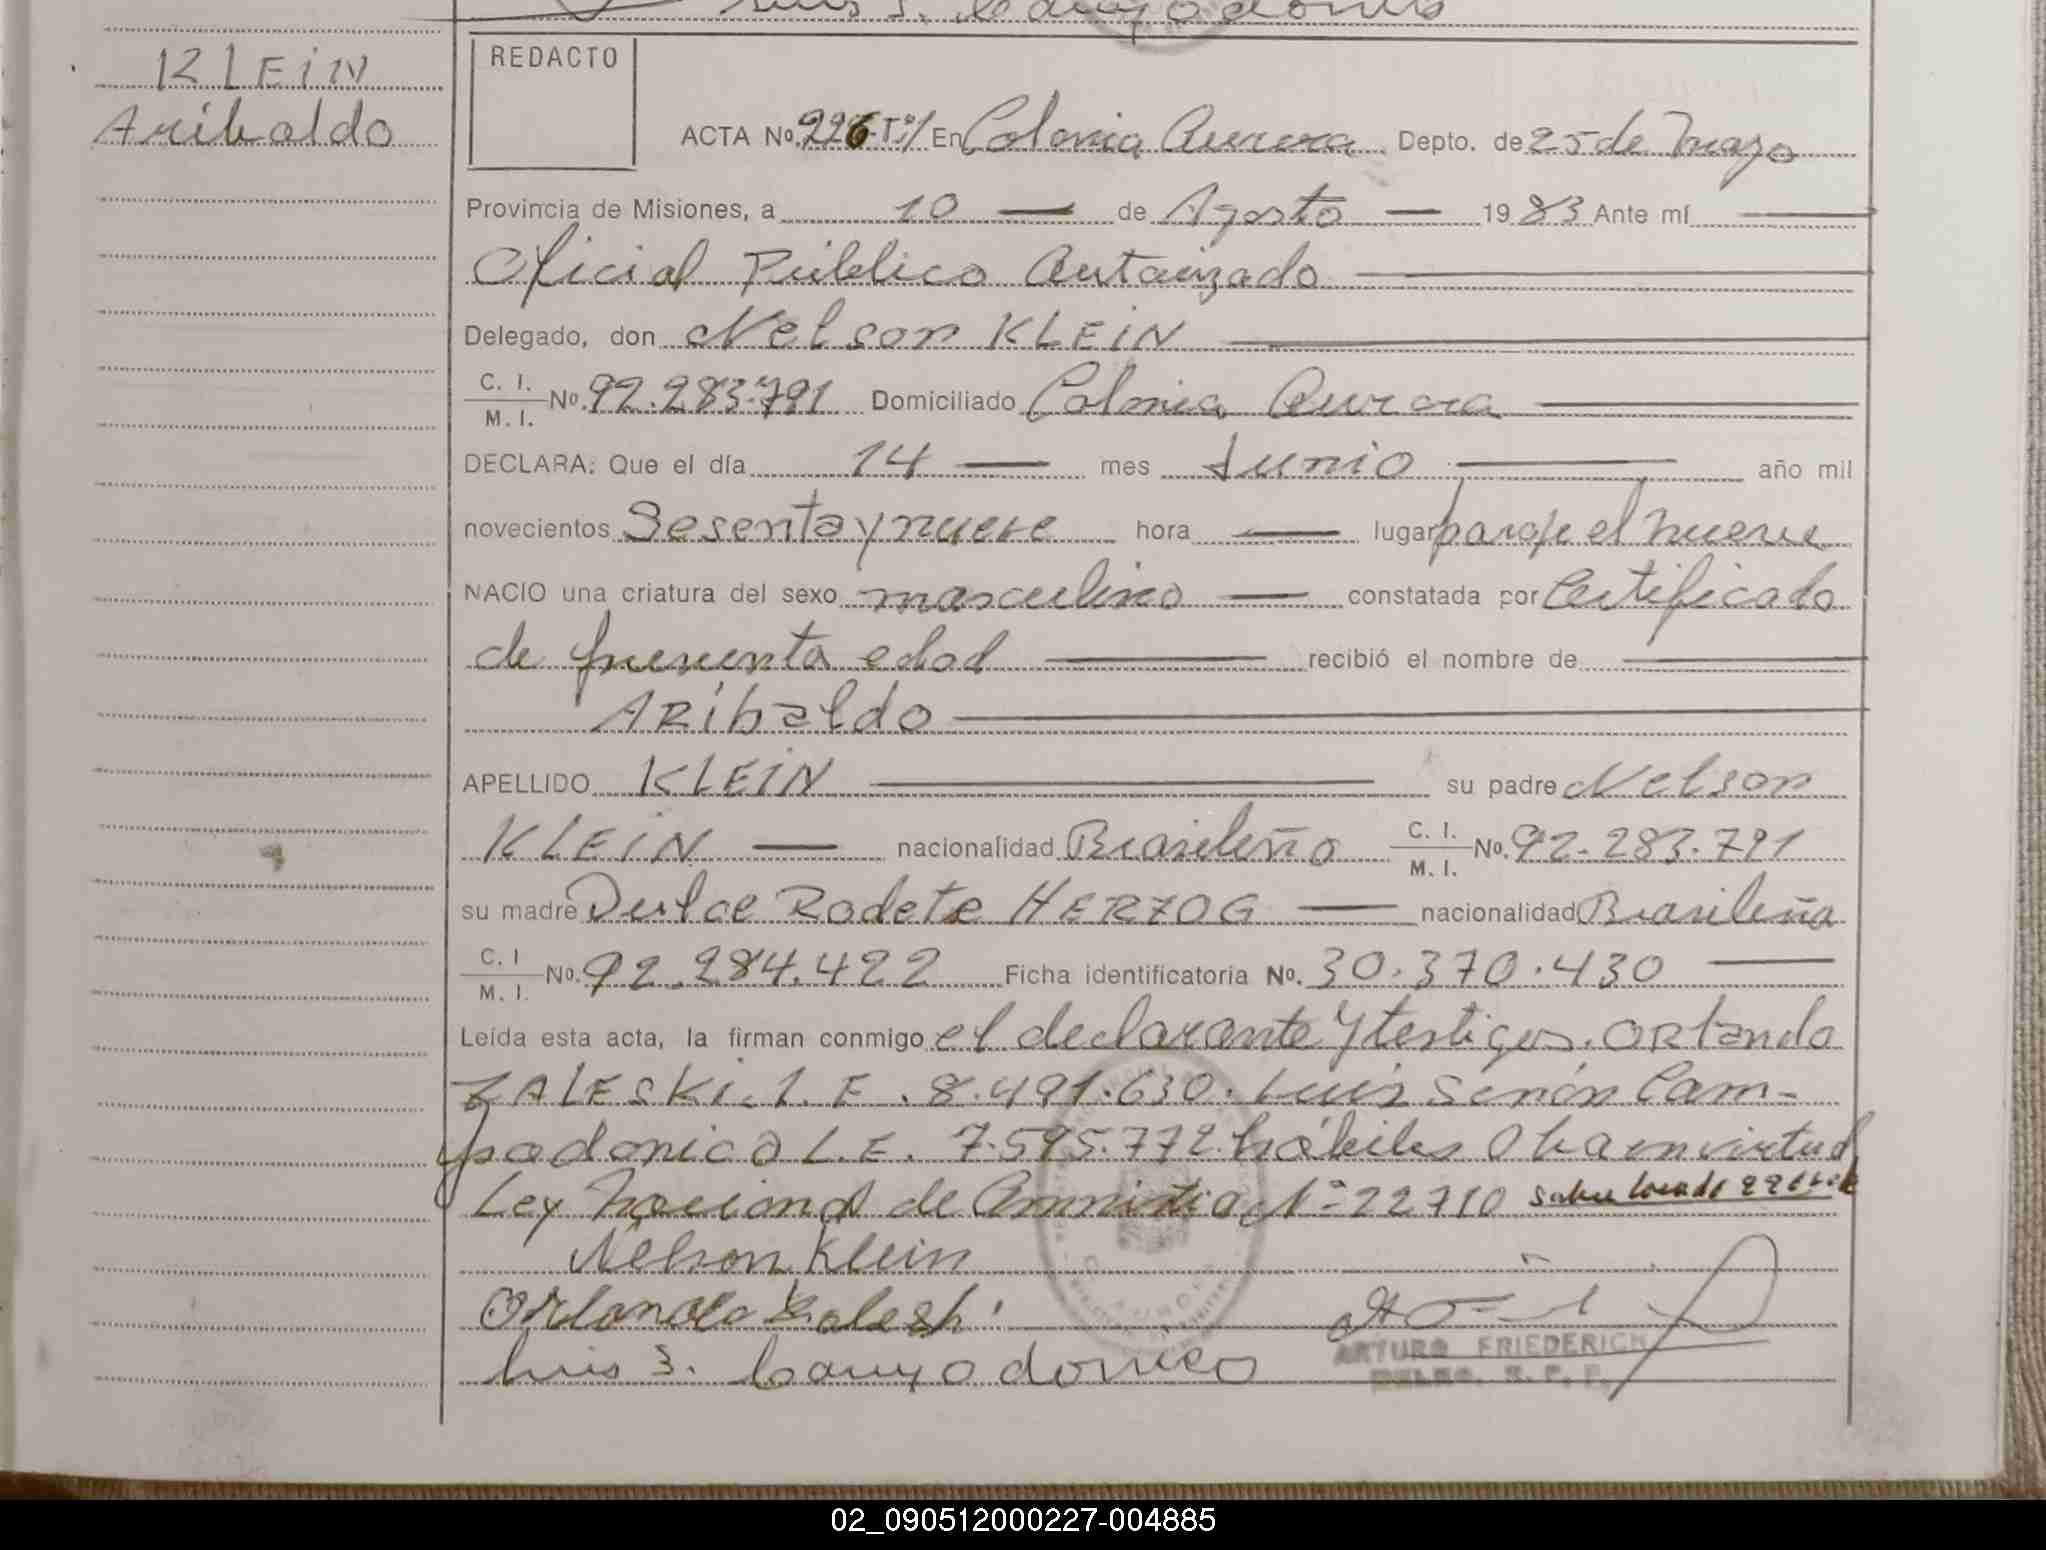 KLEIN
Aribaldo
REDACTO
ACTA No. 226-Tº1 En Colonia Aurora Depto. de 25 de Mayo
Provincia de Misiones, a 10 — de Agosto — 1983 Ante mí —
Oficial Público Autorizado —
Delegado, don Nelson KLEIN —
C. I. / M. I. No. 92.283.791 Domiciliado Colonia Aurora —
DECLARA: Que el día 14 — mes Junio — año mil
novecientos Sesenta y nueve hora — lugar paraje el nueve
NACIO una criatura del sexo masculino — constatada por Certificado
de presunta edad — recibió el nombre de —
ARibaldo —
APELLIDO KLEIN — su padre Nelson
KLEIN — nacionalidad Brasileño C. I. / M. I. No. 92.283.791
su madre Dulce Rodete HERZOG — nacionalidad Brasileña
C. I / M. I. No. 92.284.422 Ficha identificatoria No. 30.370.430 —
Leída esta acta, la firman conmigo el declarante y testigos. ORlando
ZALESKi. L. E. 8.491.630. Luis Serón Cam-
podonico L.E. 7.595.772 hábiles en virtud
Ley Nacional de Amnistia Nº 22710
Nelson Klein
Orlando Zaleski
Luis S. Campodonico
ARTURO FRIEDERICH
02_090512000227-004885